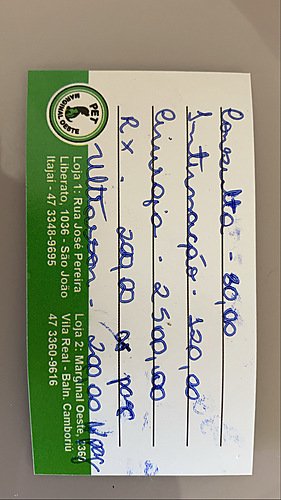 Consulta - 80,00
Internação - 120,00
Cirurgia - 2500,00
RX - 200,00 os pos
Ultrasson - 200,00
PET
MARGINAL OESTE
Loja 1: Rua José Pereira
Liberato, 1036 - São João
Itajaí - 47 3348-9695
Loja 2: Marginal Oeste, 3360
Vila Real - Baln. Camboriú
47 3360-9616